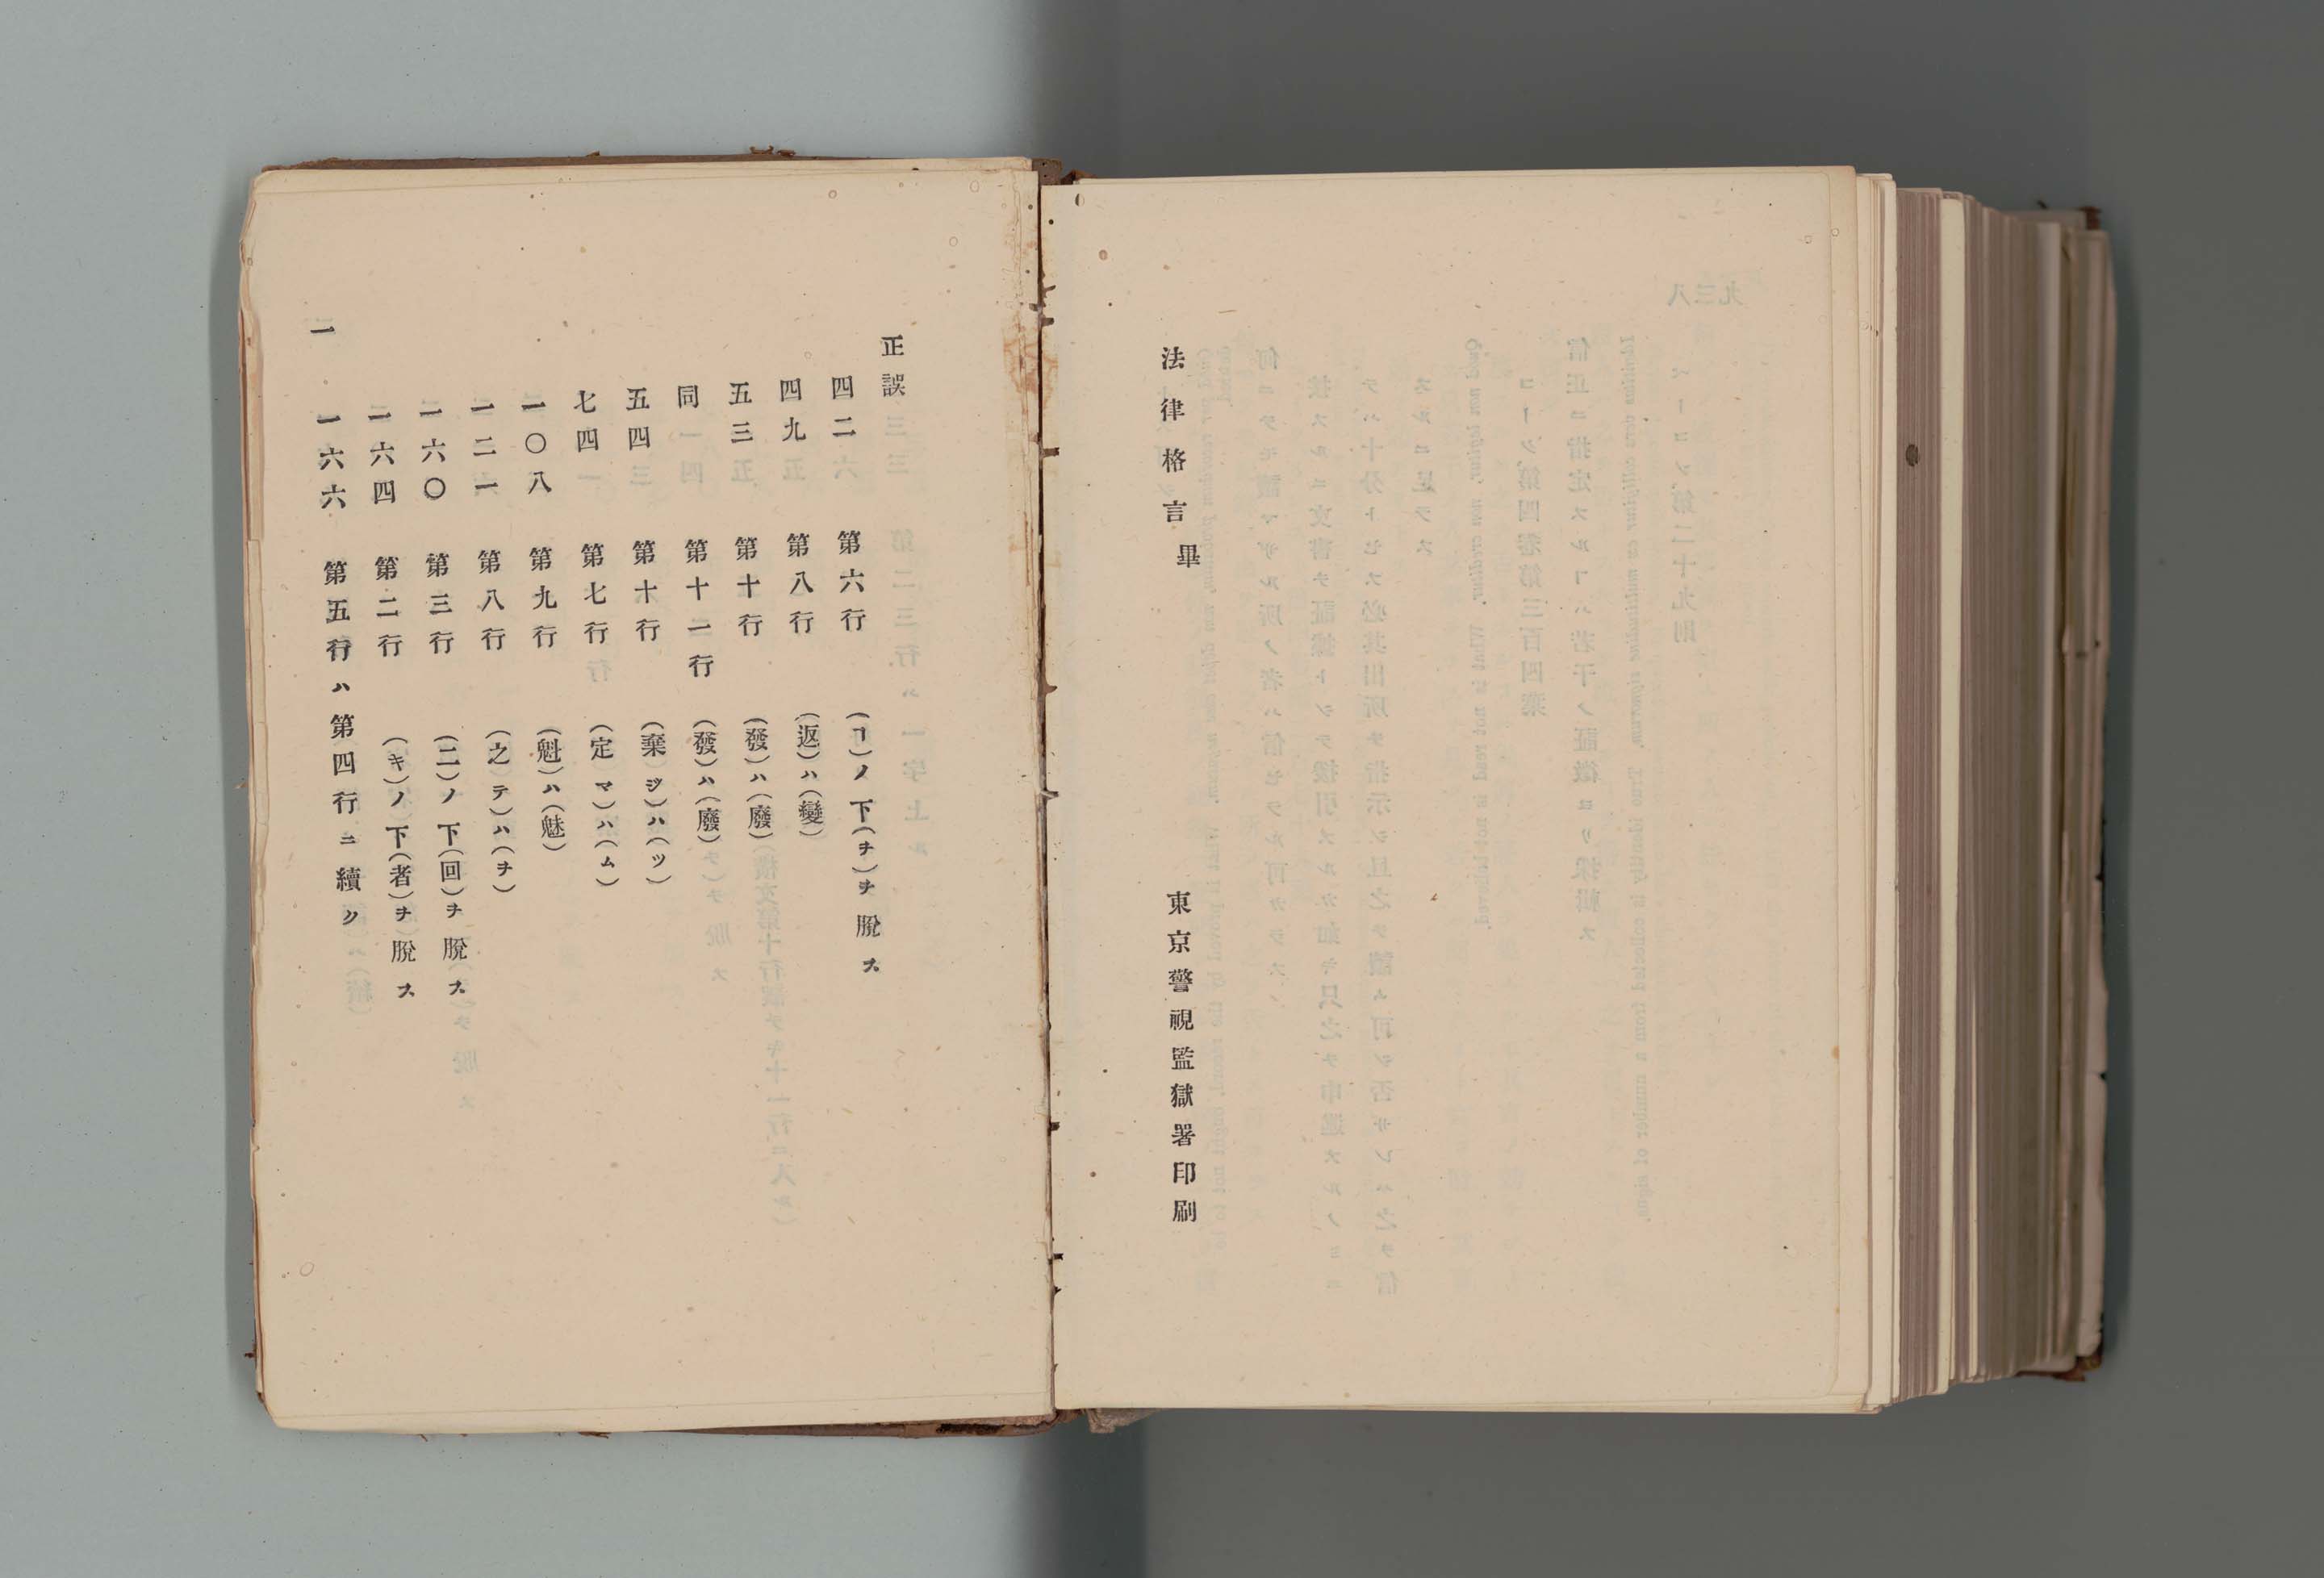 法律格言畢
東京警視監獄署印刷
正誤
四二 第六行 (ヿ)ノ下(ヲ)ヲ脫ス
四九 第八行 (返)ハ(變)
五三 第十行 (發)ハ(廢)
同 第十一行 (發)ハ(廢)
五四 第十行 (棄ジ)ハ(ツ)
七四 第七行 (定マ)ハ(ム)
一〇八 第九行 (魁)ハ(魅)
一二一 第八行 (之テ)ハ(ヲ)
一六〇 第三行 (二)ノ下(回)ヲ脫ス
一六四 第二行 (キ)ノ下(者)ヲ脫ス
一六六 第五行ハ第四行ニ續ク
一